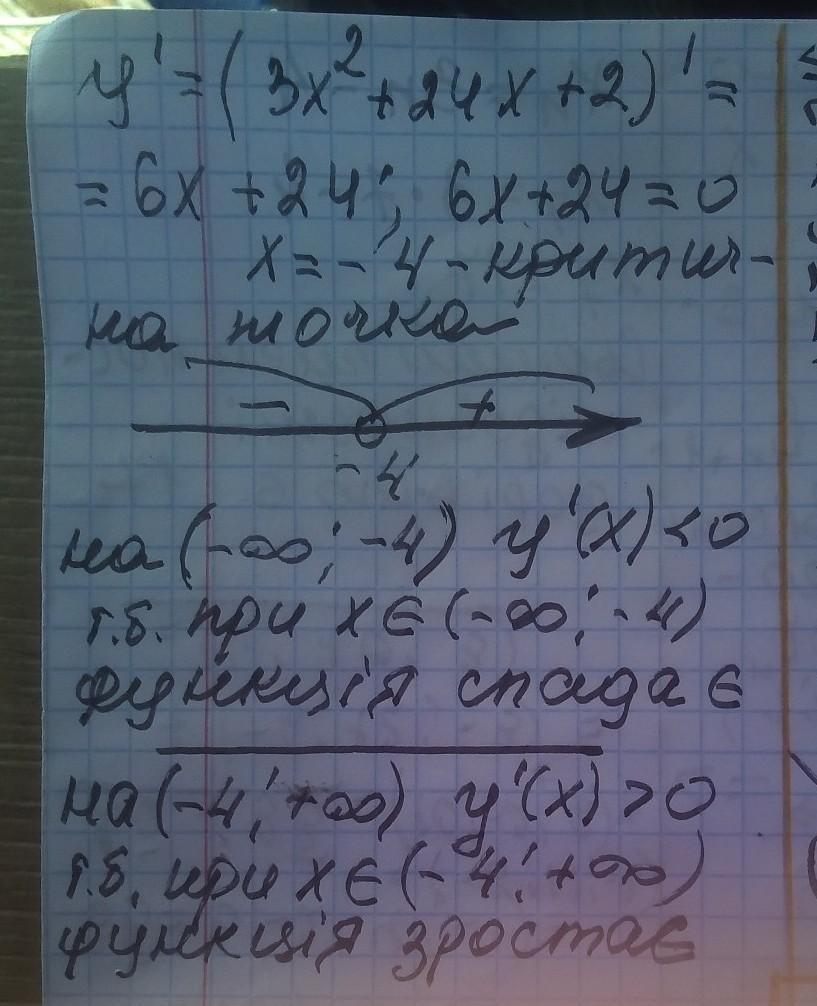 y' = (3x² + 24x + 2)' =
= 6x + 24; 6x + 24 = 0
x = -4 - критич-
на точка
- +
-4
на (-∞; -4) y'(x) < 0
т.б. при x ∈ (-∞; -4)
функція спадає
на (-4; +∞) y'(x) > 0
т.б. при x ∈ (-4; +∞)
функція зростає